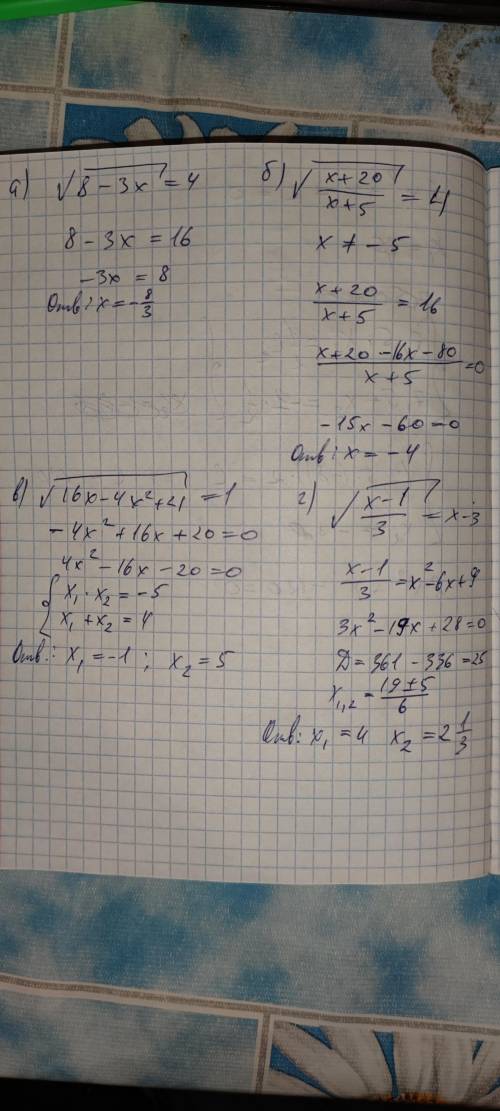 а) √(8 - 3x) = 4
8 - 3x = 16
-3x = 8
Отв: x = -8/3
б) √((x+20)/(x+5)) = 4
x ≠ -5
(x+20)/(x+5) = 16
(x+20-16x-80)/(x+5) = 0
-15x - 60 = 0
Отв: x = -4
в) √(16x-4x²+21) = 1
-4x²+16x+20=0
4x²-16x-20=0
{ x₁ · x₂ = -5
x₁ + x₂ = 4
Отв.: x₁ = -1 ; x₂ = 5
г) √((x-1)/3) = x-3
(x-1)/3 = x²-6x+9
3x²-19x+28=0
D=361-336=25
x₁,₂ = (19±5)/6
Отв: x₁ = 4 x₂ = 2 1/3